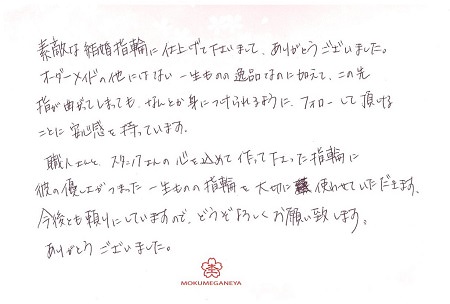 素敵な結婚指輪に仕上げて下さいまして、ありがとうございました。
オーダーメイドの他にはない一生ものの逸品なのに加えて、この先
指が曲がってしまっても、なんとか身につけられるように、フォローして頂ける
ことに安心感を持っています。
職人さんと、スタッフさんの心を込めて作って下さった指輪に
彼の優しさがつまった一生ものの指輪を大切に使わせていただきます。
今後とも頼りにしていますので、どうぞよろしくお願い致します。
ありがとうございました。
MOKUMEGANEYA